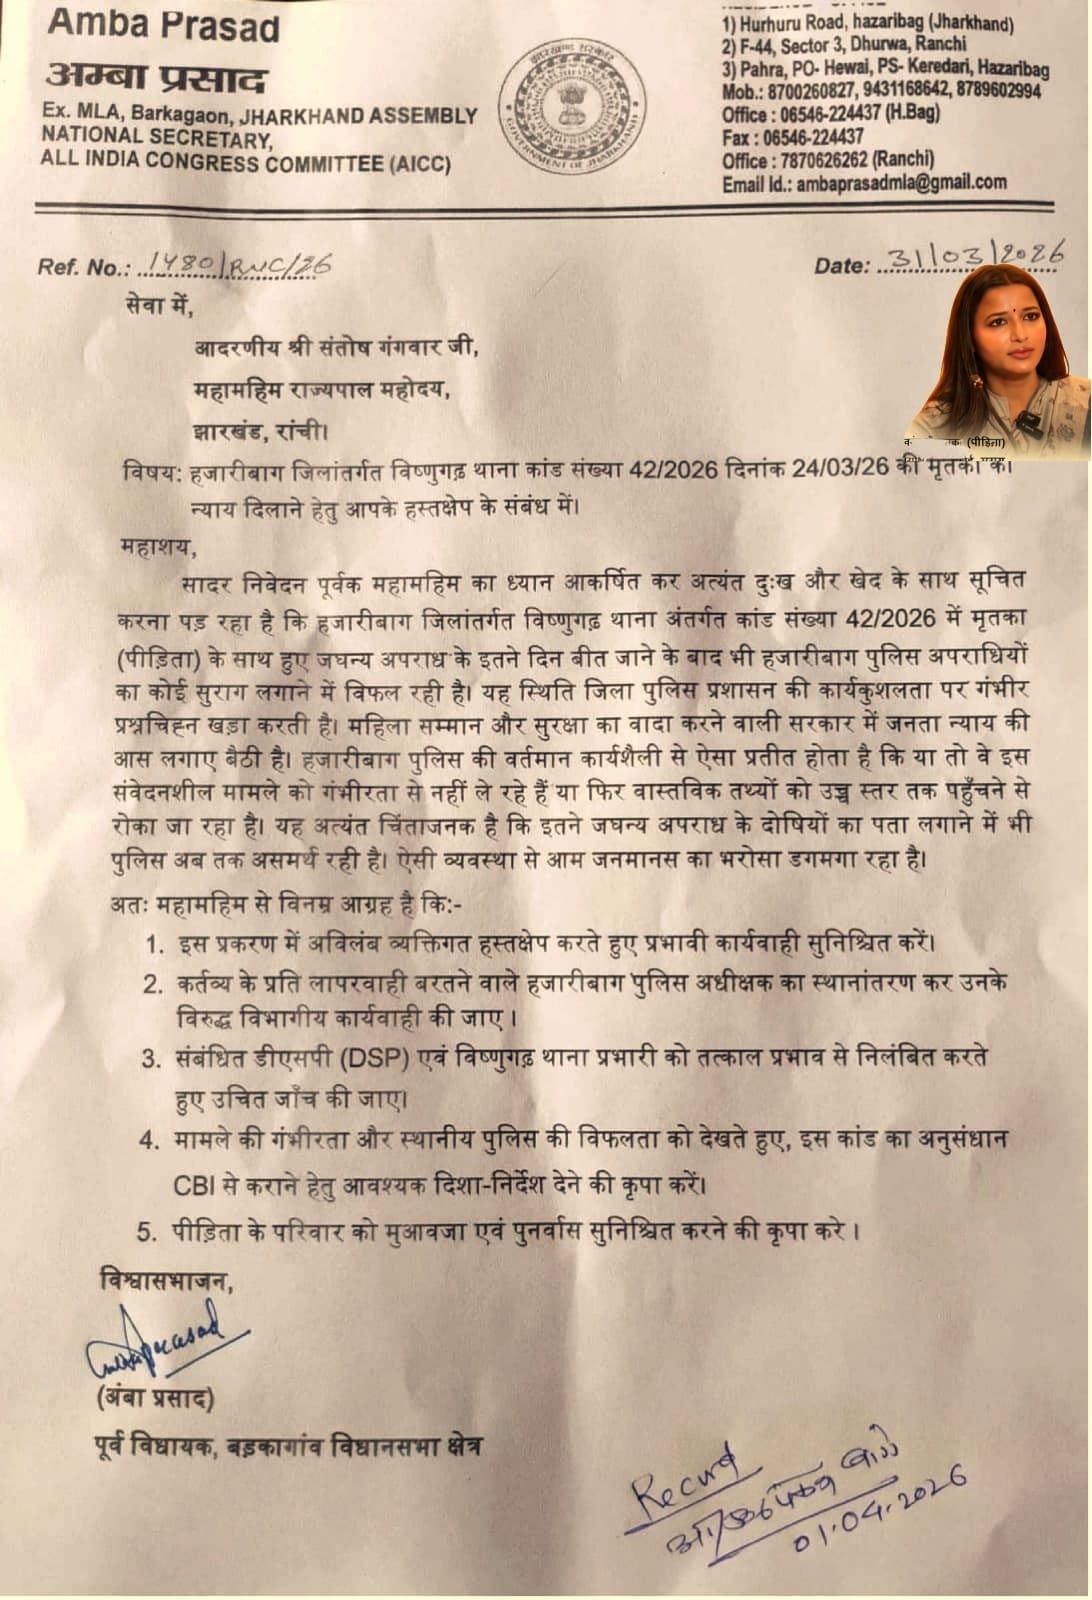 Amba Prasad
अम्बा प्रसाद
Ex. MLA, Barkagaon, JHARKHAND ASSEMBLY
NATIONAL SECRETARY,
ALL INDIA CONGRESS COMMITTEE (AICC)
झारखण्ड सरकार
GOVERNMENT OF JHARKHAND
1) Hurhuru Road, hazaribag (Jharkhand)
2) F-44, Sector 3, Dhurwa, Ranchi
3) Pahra, PO- Hewai, PS- Keredari, Hazaribag
Mob.: 8700260827, 9431168642, 8789602994
Office : 06546-224437 (H.Bag)
Fax : 06546-224437
Office : 7870626262 (Ranchi)
Email Id.: ambaprasadmla@gmail.com
Ref. No.: 1480/RNC/26
Date: 31/03/2026
सेवा में,
आदरणीय श्री संतोष गंगवार जी,
महामहिम राज्यपाल महोदय,
झारखंड, रांची।
(पीड़िता)
विषय: हजारीबाग जिलांतर्गत विष्णुगढ़ थाना कांड संख्या 42/2026 दिनांक 24/03/26 की मृतका को
न्याय दिलाने हेतु आपके हस्तक्षेप के संबंध में।
महाशय,
सादर निवेदन पूर्वक महामहिम का ध्यान आकर्षित कर अत्यंत दुःख और खेद के साथ सूचित
करना पड़ रहा है कि हजारीबाग जिलांतर्गत विष्णुगढ़ थाना अंतर्गत कांड संख्या 42/2026 में मृतका
(पीड़िता) के साथ हुए जघन्य अपराध के इतने दिन बीत जाने के बाद भी हजारीबाग पुलिस अपराधियों
का कोई सुराग लगाने में विफल रही है। यह स्थिति जिला पुलिस प्रशासन की कार्यकुशलता पर गंभीर
प्रश्नचिह्न खड़ा करती है। महिला सम्मान और सुरक्षा का वादा करने वाली सरकार में जनता न्याय की
आस लगाए बैठी है। हजारीबाग पुलिस की वर्तमान कार्यशैली से ऐसा प्रतीत होता है कि या तो वे इस
संवेदनशील मामले को गंभीरता से नहीं ले रहे हैं या फिर वास्तविक तथ्यों को उच्च स्तर तक पहुँचने से
रोका जा रहा है। यह अत्यंत चिंताजनक है कि इतने जघन्य अपराध के दोषियों का पता लगाने में भी
पुलिस अब तक असमर्थ रही है। ऐसी व्यवस्था से आम जनमानस का भरोसा डगमगा रहा है।
अतः महामहिम से विनम्र आग्रह है कि:-
1. इस प्रकरण में अविलंब व्यक्तिगत हस्तक्षेप करते हुए प्रभावी कार्यवाही सुनिश्चित करें।
2. कर्तव्य के प्रति लापरवाही बरतने वाले हजारीबाग पुलिस अधीक्षक का स्थानांतरण कर उनके
विरुद्ध विभागीय कार्यवाही की जाए ।
3. संबंधित डीएसपी (DSP) एवं विष्णुगढ़ थाना प्रभारी को तत्काल प्रभाव से निलंबित करते
हुए उचित जाँच की जाए।
4. मामले की गंभीरता और स्थानीय पुलिस की विफलता को देखते हुए, इस कांड का अनुसंधान
CBI से कराने हेतु आवश्यक दिशा-निर्देश देने की कृपा करें।
5. पीड़िता के परिवार को मुआवजा एवं पुनर्वास सुनिश्चित करने की कृपा करे ।
विश्वासभाजन,
(अंबा प्रसाद)
पूर्व विधायक, बड़कागांव विधानसभा क्षेत्र
01.04.2026